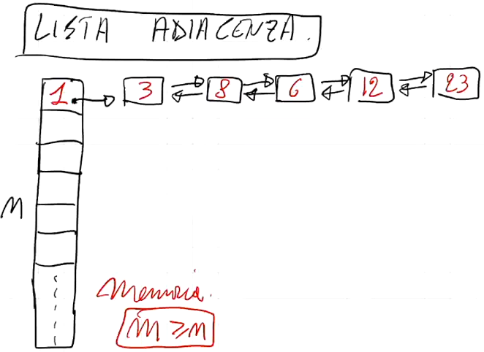 LISTA ADIACENZA.
1 3 8 6 12 23
n
Memoria.
m ≥ n